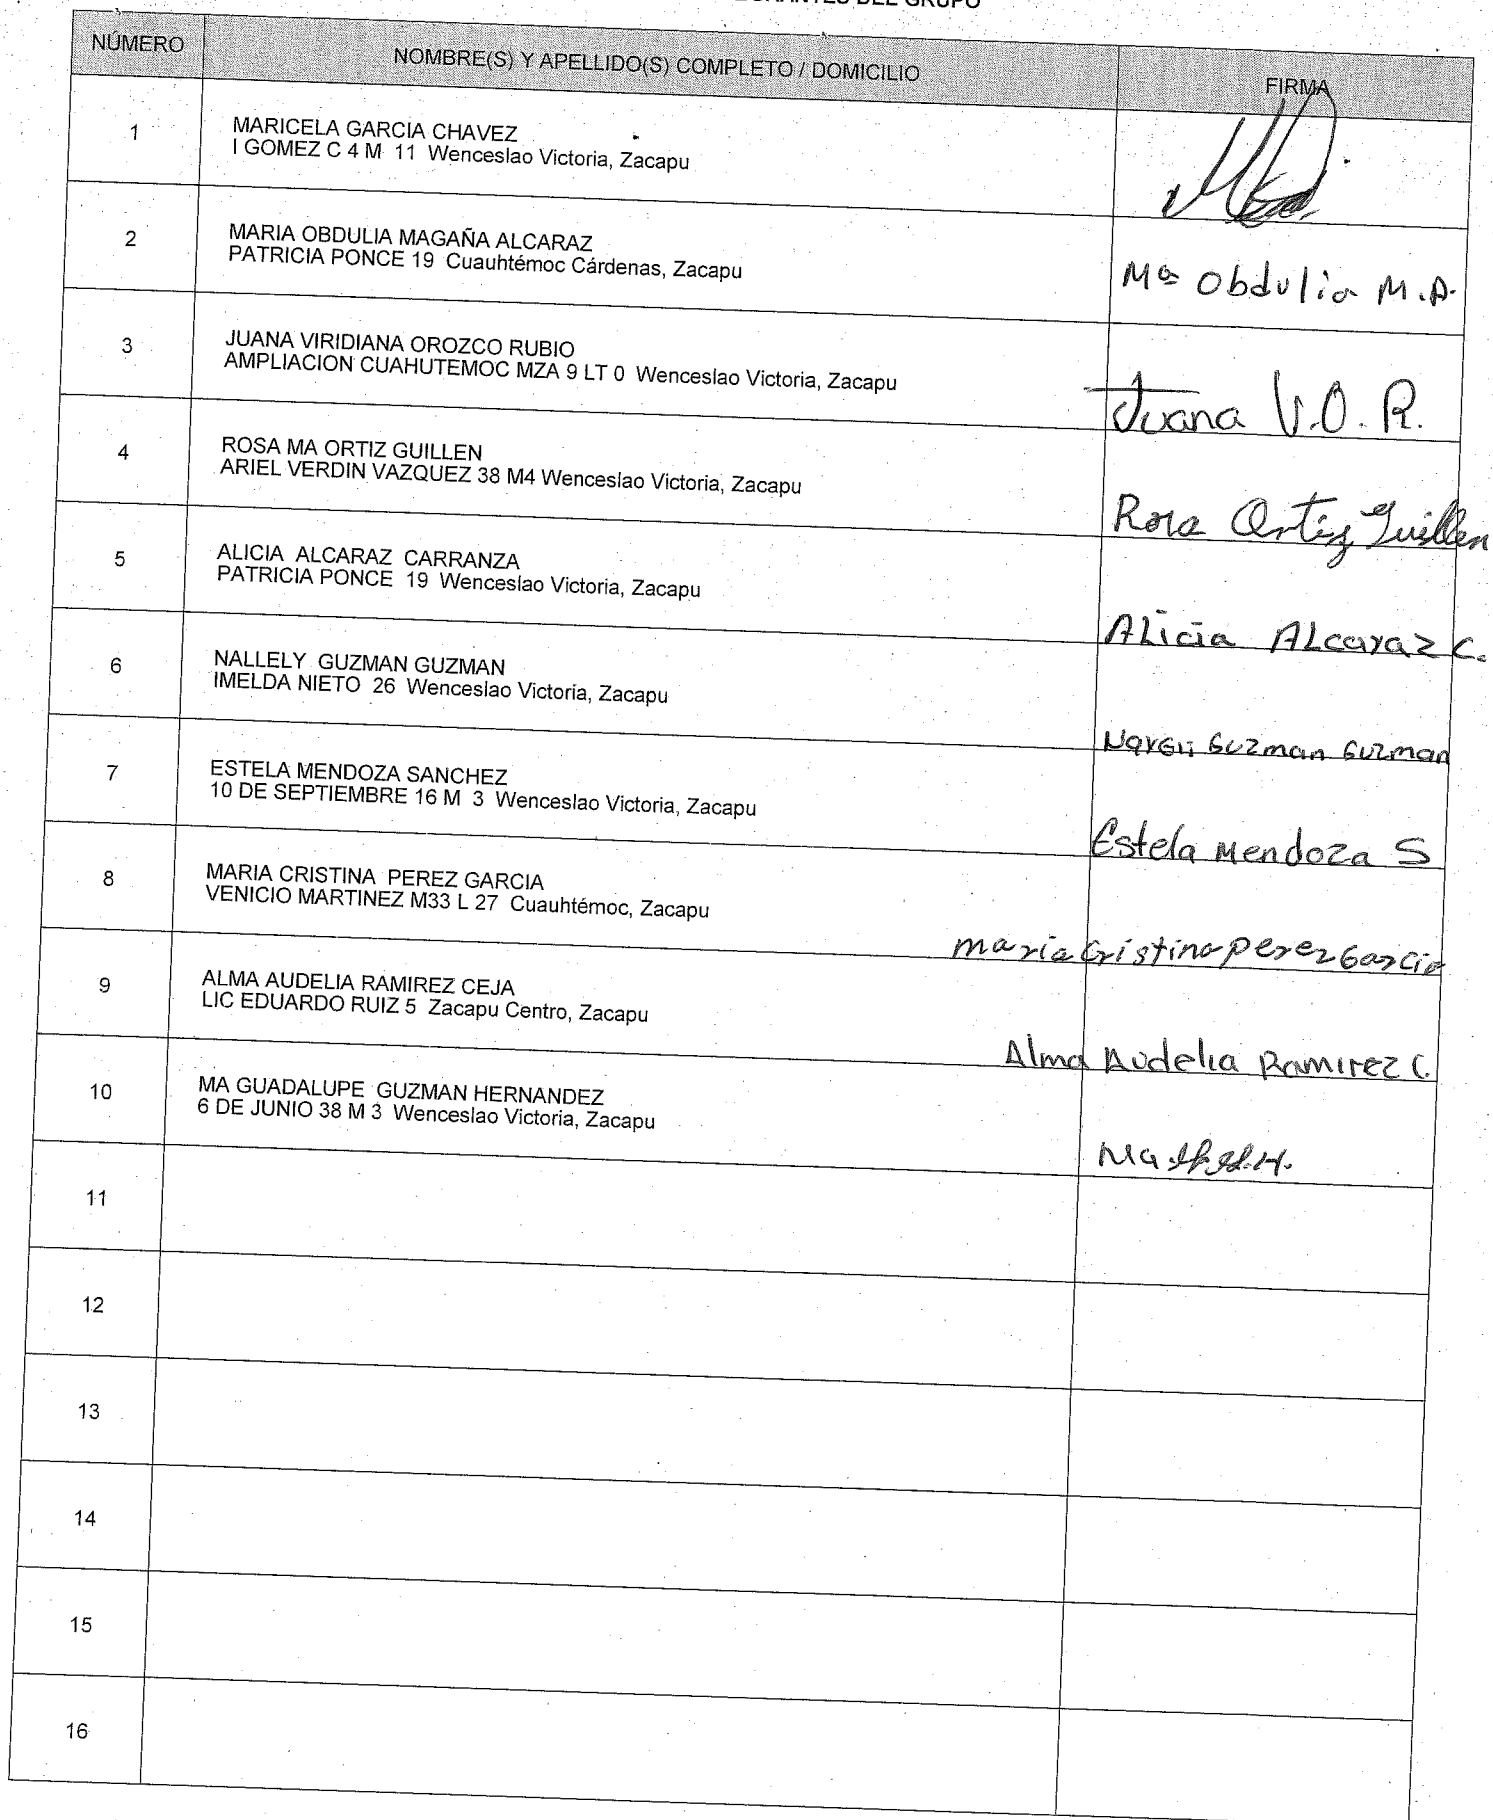 DEL GRUPO
NÚMERO NOMBRE(S) Y APELLIDO(S) COMPLETO / DOMICILIO FIRMA
1 MARICELA GARCIA CHAVEZ
I GOMEZ C 4 M 11 Wenceslao Victoria, Zacapu
2 MARIA OBDULIA MAGAÑA ALCARAZ
PATRICIA PONCE 19 Cuauhtémoc Cárdenas, Zacapu
Mª Obdulia M.A.
3 JUANA VIRIDIANA OROZCO RUBIO
AMPLIACION CUAHUTEMOC MZA 9 LT 0 Wenceslao Victoria, Zacapu
Juana V.O.R.
4 ROSA MA ORTIZ GUILLEN
ARIEL VERDIN VAZQUEZ 38 M4 Wenceslao Victoria, Zacapu
Rosa Ortiz Guillen
5 ALICIA ALCARAZ CARRANZA
PATRICIA PONCE 19 Wenceslao Victoria, Zacapu
ALicia ALcaraz C.
6 NALLELY GUZMAN GUZMAN
IMELDA NIETO 26 Wenceslao Victoria, Zacapu
Guzman Guzman
7 ESTELA MENDOZA SANCHEZ
10 DE SEPTIEMBRE 16 M 3 Wenceslao Victoria, Zacapu
Estela Mendoza S
8 MARIA CRISTINA PEREZ GARCIA
VENICIO MARTINEZ M33 L 27 Cuauhtémoc, Zacapu
maria Cristina Perez Garcia
9 ALMA AUDELIA RAMIREZ CEJA
LIC EDUARDO RUIZ 5 Zacapu Centro, Zacapu
Alma Audelia Ramirez C.
10 MA GUADALUPE GUZMAN HERNANDEZ
6 DE JUNIO 38 M 3 Wenceslao Victoria, Zacapu
Ma
11
12
13
14
15
16